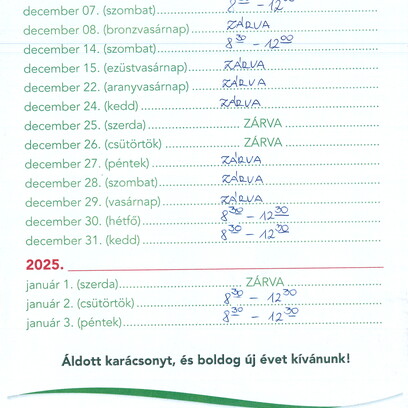 december 07. (szombat) 8 30 – 12 00
december 08. (bronzvasárnap) ZÁRVA
december 14. (szombat) 8 30 – 12 00
december 15. (ezüstvasárnap) ZÁRVA
december 22. (aranyvasárnap) ZÁRVA
december 24. (kedd) ZÁRVA
december 25. (szerda) ZÁRVA
december 26. (csütörtök) ZÁRVA
december 27. (péntek) ZÁRVA
december 28. (szombat) ZÁRVA
december 29. (vasárnap) ZÁRVA
december 30. (hétfő) 8 30 – 12 30
december 31. (kedd) 8 30 – 12 30
2025.
január 1. (szerda) ZÁRVA
január 2. (csütörtök) 8 30 – 12 30
január 3. (péntek) 8 30 – 12 30
Áldott karácsonyt, és boldog új évet kívánunk!